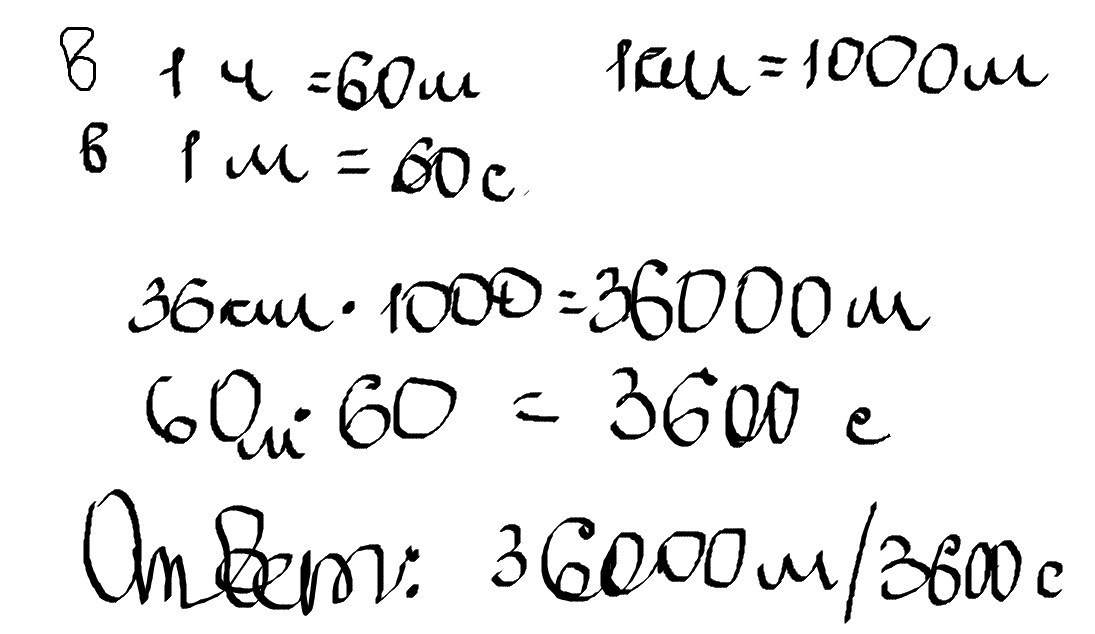 в 1 ч = 60 м 1 км = 1000 м
в 1 м = 60 с
36 км · 1000 = 36000 м
60 м · 60 = 3600 с
Ответ: 36000 м/3600 с